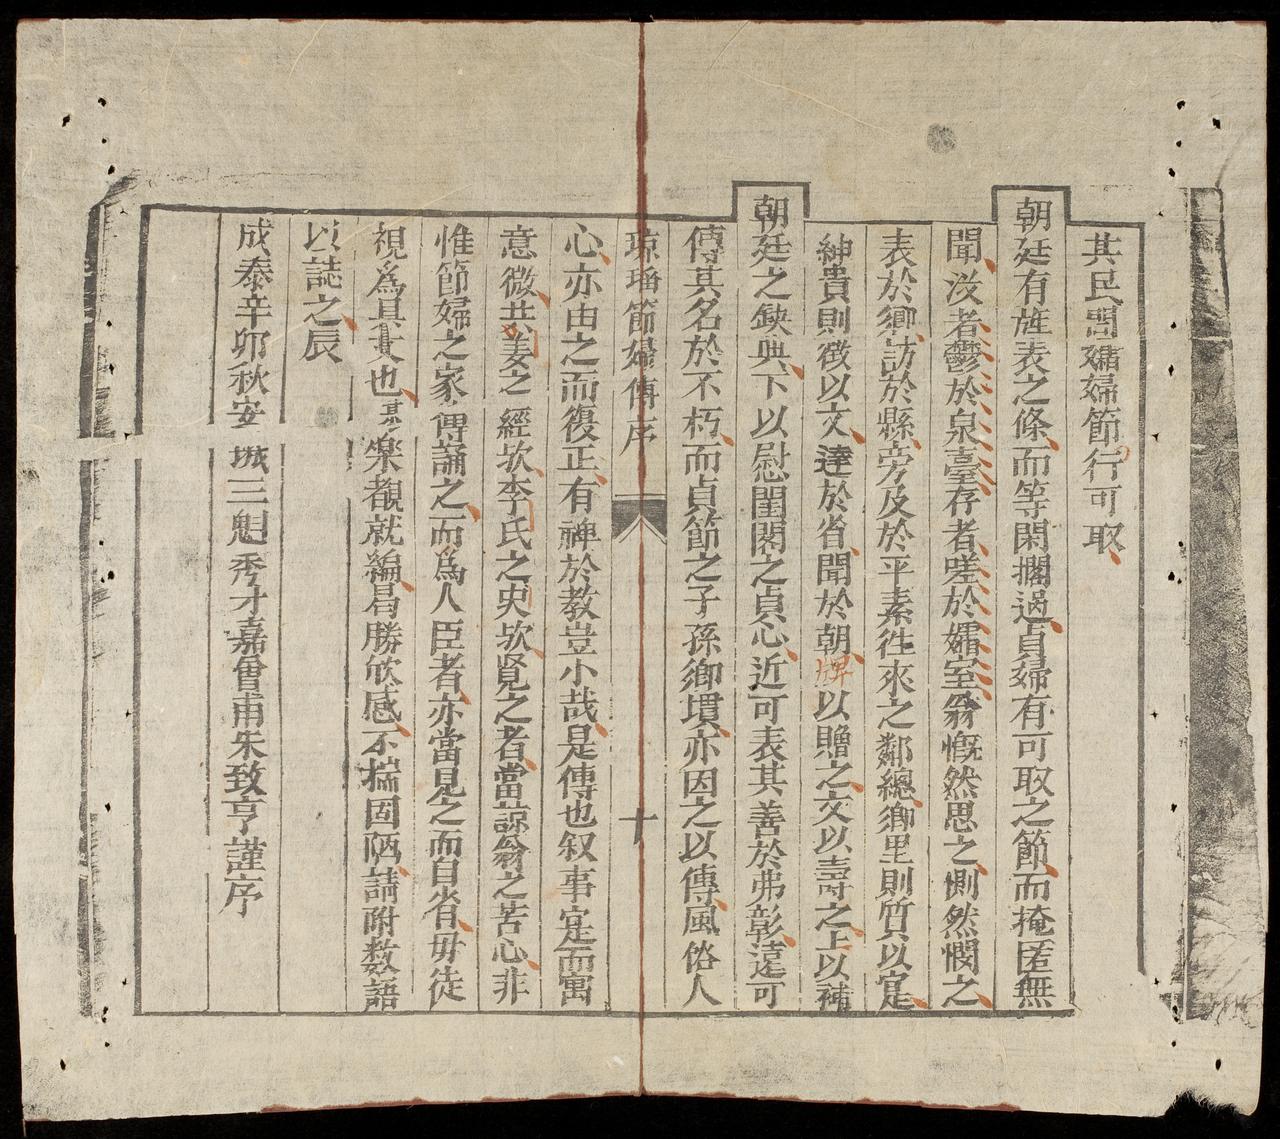 其民間孀婦節行可取
朝廷有旌表之條而等閑擱過貞婦有可取之節而掩匿無
聞没者鬱於泉臺存者嗟於孀室翁慨然思之惻然憫之
表於鄉訪於縣旁及於平素徃來之鄰總鄉里則質以寔
紳貴則徵以文達於省聞於朝牌以贈之文以壽之上以補
朝廷之缺典下以慰閨閣之貞心近可表其善於弗彰遠可
傳其名於不朽而貞節之子孫鄉墳亦因之以傳風俗人
琼瑶節婦傳序
十
心亦由之而復正有裨於教豈小哉是傳也叙事寔而寓
意微共姜之經欤李氏之史欤覽之者當諒翁之苦心非
惟節婦之家傳誦之而爲人臣者亦當見之而自省毋徒
視爲具也某樂覩就編曷勝欣感不揣固陋請附数語
以誌之辰
成泰辛卯秋安城三魁秀才嘉會甫朱致亨謹序